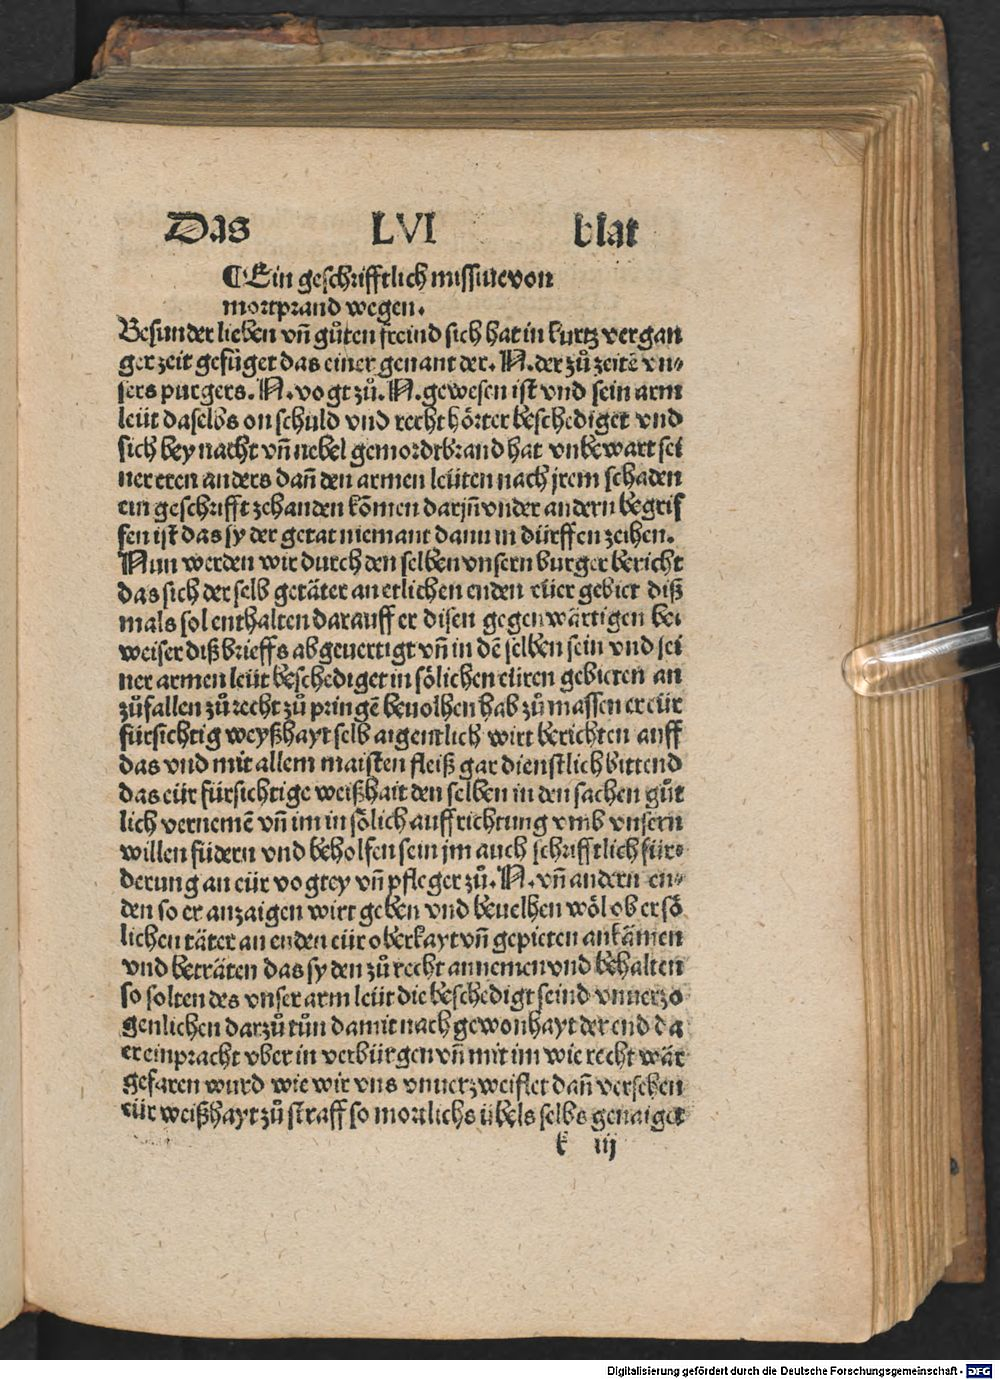 Das LVI blat
¶ Ein geschrifftlich missiue von
mortprand wegen.
Besunder lieben vn̄ gůten freind sich hat in kurtz vergan
ger zeit gefüget das einer genant der. N. der zů zeitē vn⸗
sers purgers. N. vogt zů. N. gewesen ist vnd sein arm
leüt daselbs on schuld vnd recht hörter beschediget vnd
sich bey nacht vn̄ nebel gemordtbrand hat vnbewart sei
ner eren anders dan̄ den armen leüten nach jrem schaden
ein geschrifft zehanden kōmen darjn̄ vnder andern begrif
fen ist das sy der getat niemant dann in dürffen zeihen.
Nun werden wir durch den selben vnsern burger bericht
das sich der selb getäter an etlichen enden eüer gebiet diß
mals sol enthalten darauff er disen gegenwärtigen bei
weiser diß brieffs abgeuertigt vn̄ in dē selben sein vnd sei
ner armen leüt beschediget in sölichen eüren gebieten an
zůfallen zů recht zů pringē beuolhen hab zů massen er eür
fürsichtig weyßhayt selb aigentlich wirt berichten auff
das vnd mit allem maisten fleiß gar dienstlich bittend
das eür fürsichtige weißhait den selben in den sachen gůt
lich vernemē vn̄ im in sölich auffrichtung vmb vnsern
willen füdern vnd beholfen sein jm auch schrifftlich für⸗
derung an eür vogtey vn̄ pfleger zů. N. vn̄ andern en⸗
den so er anzaigen wirt geben vnd beuelhen wöl ob er sö
lichen täter an enden eür oberkayt vn̄ gepieten ankämen
vnd beträten das sy den zů recht annemen vnd behalten
so solten des vnser arm leüt die beschedigt seind vnuerzo
genlichen darzů tůn damit nach gewonhayt der end da
er einpracht vber in verbürgen vn̄ mit im wie recht wär
gefaren wurd wie wir vns vnuerzweiflet dan̄ versehen
eür weißhayt zů straff so mortlichs übels selbs genaiget
k iij
Digitalisierung gefördert durch die Deutsche Forschungsgemeinschaft - DFG